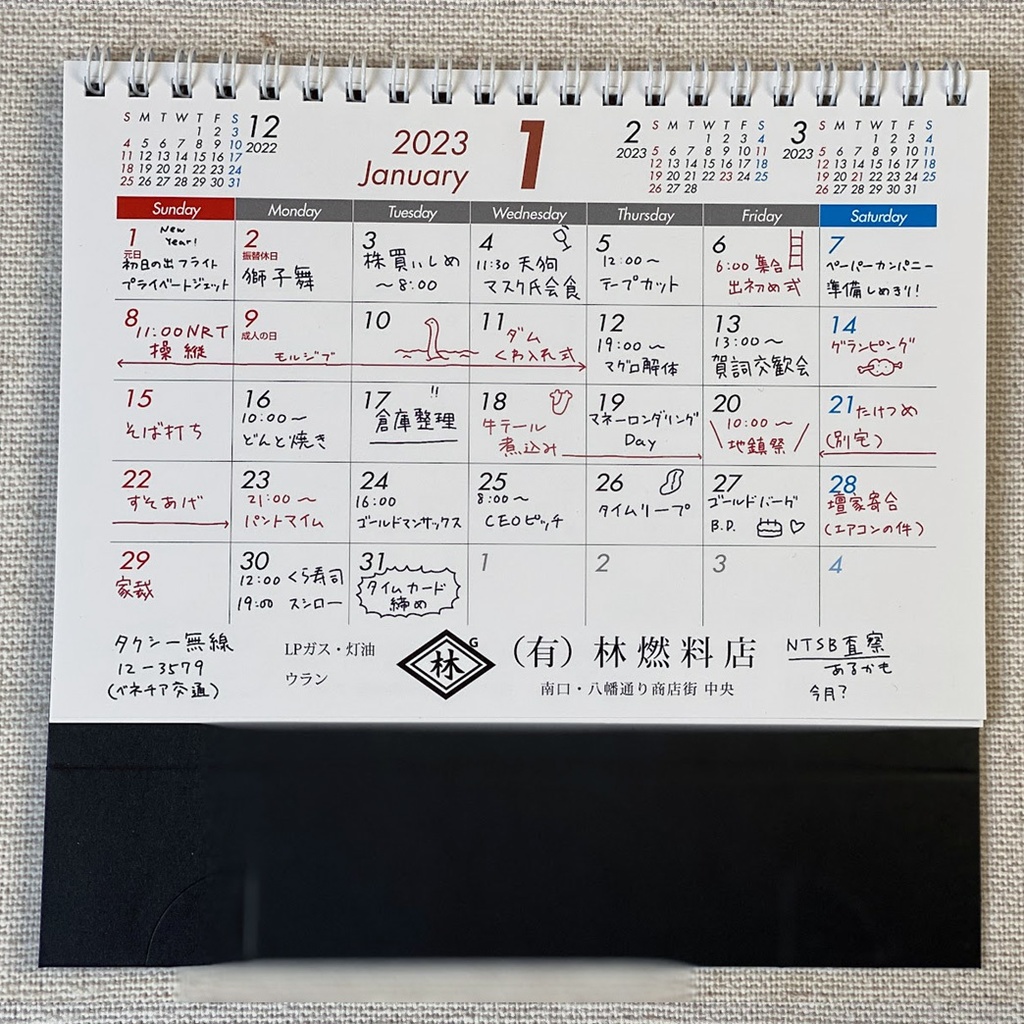 12
2022
S M T W T F S
1 2 3
4 5 6 7 8 9 10
11 12 13 14 15 16 17
18 19 20 21 22 23 24
25 26 27 28 29 30 31
2023
January
1
2
2023
S M T W T F S
1 2 3 4
5 6 7 8 9 10 11
12 13 14 15 16 17 18
19 20 21 22 23 24 25
26 27 28
3
2023
S M T W T F S
1 2 3 4
5 6 7 8 9 10 11
12 13 14 15 16 17 18
19 20 21 22 23 24 25
26 27 28 29 30 31
Sunday Monday Tuesday Wednesday Thursday Friday Saturday
1 New
Year!
元日
初日の出フライト
プライベートジェット
2
振替休日
獅子舞
3
株買いしめ
〜8:00
4
11:30 天狗
マスク氏会食
5
12:00〜
テープカット
6
6:00 集合
出初め式
7
ペーパーカンパニー
準備しめきり!
8
11:00NRT
操縦
9
成人の日
モルジブ
10
11
ダム
くわ入れ式
12
19:00〜
マグロ解体
13
13:00〜
賀詞交歓会
14
グランピング
15
そば打ち
16
10:00〜
どんど焼き
17 !!
倉庫整理
18
牛テール
煮込み
19
マネーロンダリング
Day
20
10:00〜
地鎮祭
21 たけつめ
(別宅)
22
すそあげ
23
21:00〜
パントマイム
24
16:00
ゴールドマンサックス
25
8:00〜
CEOピッチ
26
タイムリープ
27
ゴールドバーグ
B.D.
28
壇家寄合
(エアコンの件)
29
家裁
30
12:00 くら寿司
19:00 スシロー
31
タイムカード
締め
1
2
3
4
タクシー無線
12-3579
(ベネチア交通)
LPガス・灯油
ウラン
林
G
(有)林燃料店
南口・八幡通り商店街 中央
NTSB査察
あるかも
今月?